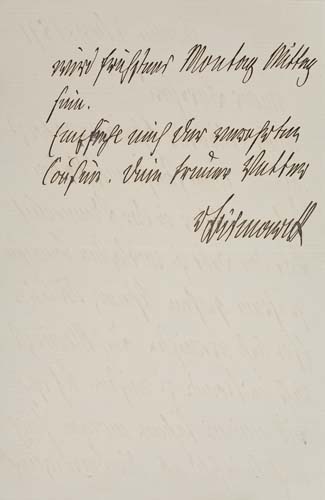 wird frühstens Montag Mittag
sein.
Empfiehl mich der verehrten
Cousine. Dein treuer Vetter
vBismarck